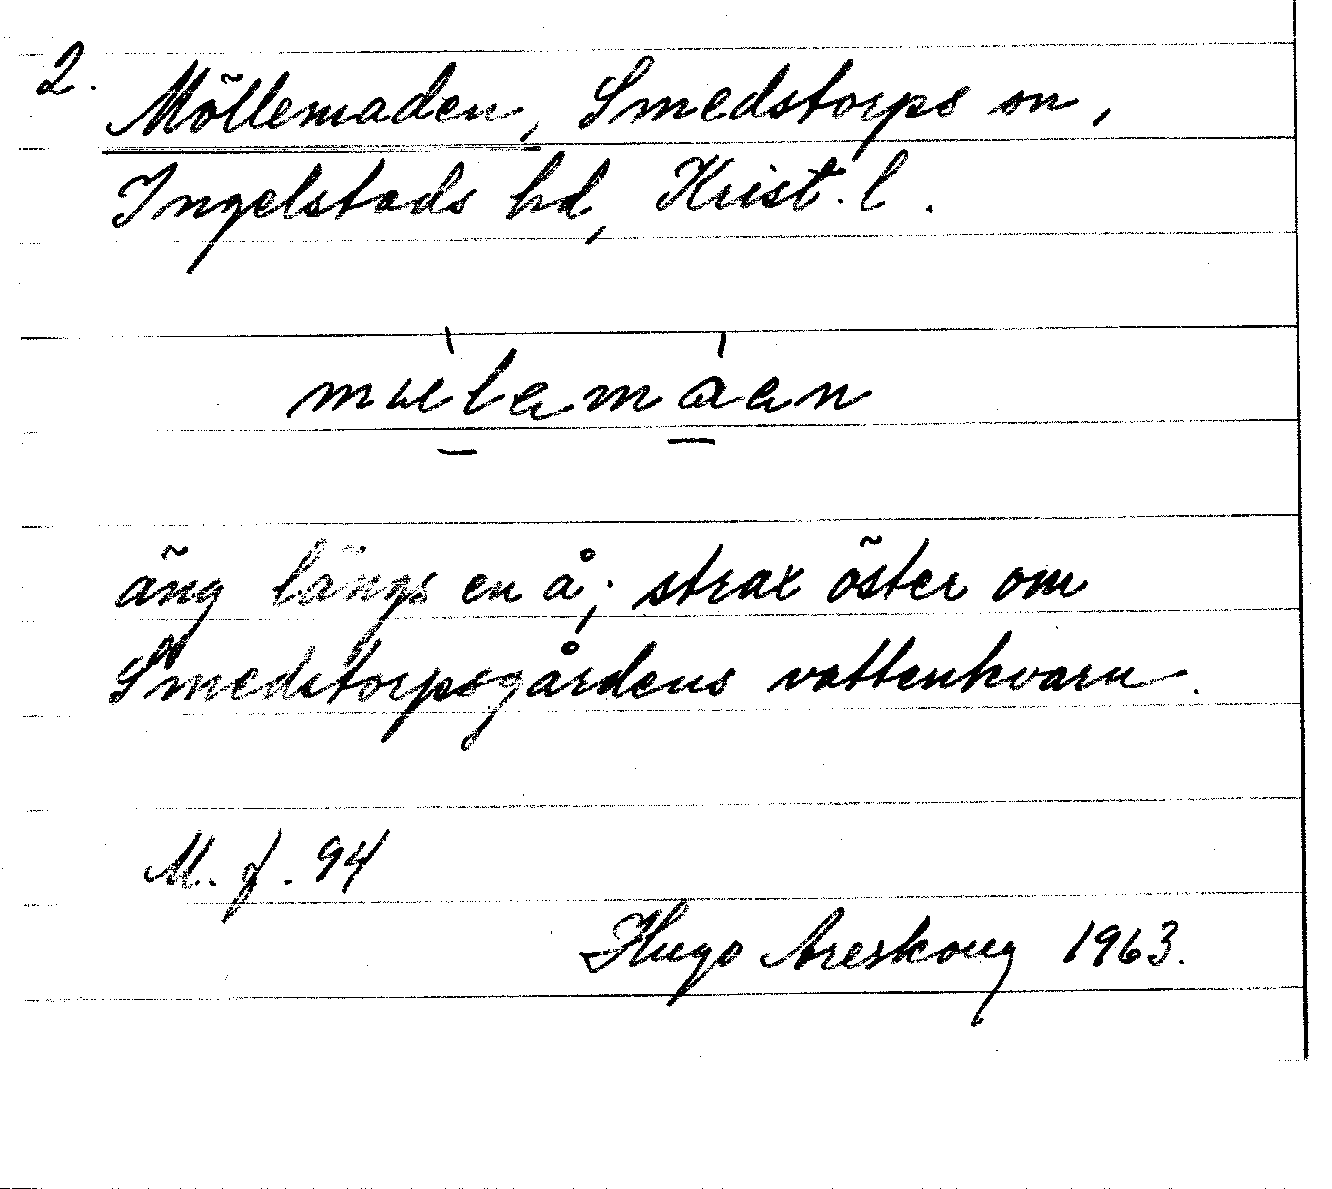 2. Möllemaden, Smedstorps sn,
Ingelstads hd, Krist. l.
äng längs en å; strax öster om
Smedstorpsgårdens vattenkvarn.
M. f. 94
Hugo Areskoug 1963.